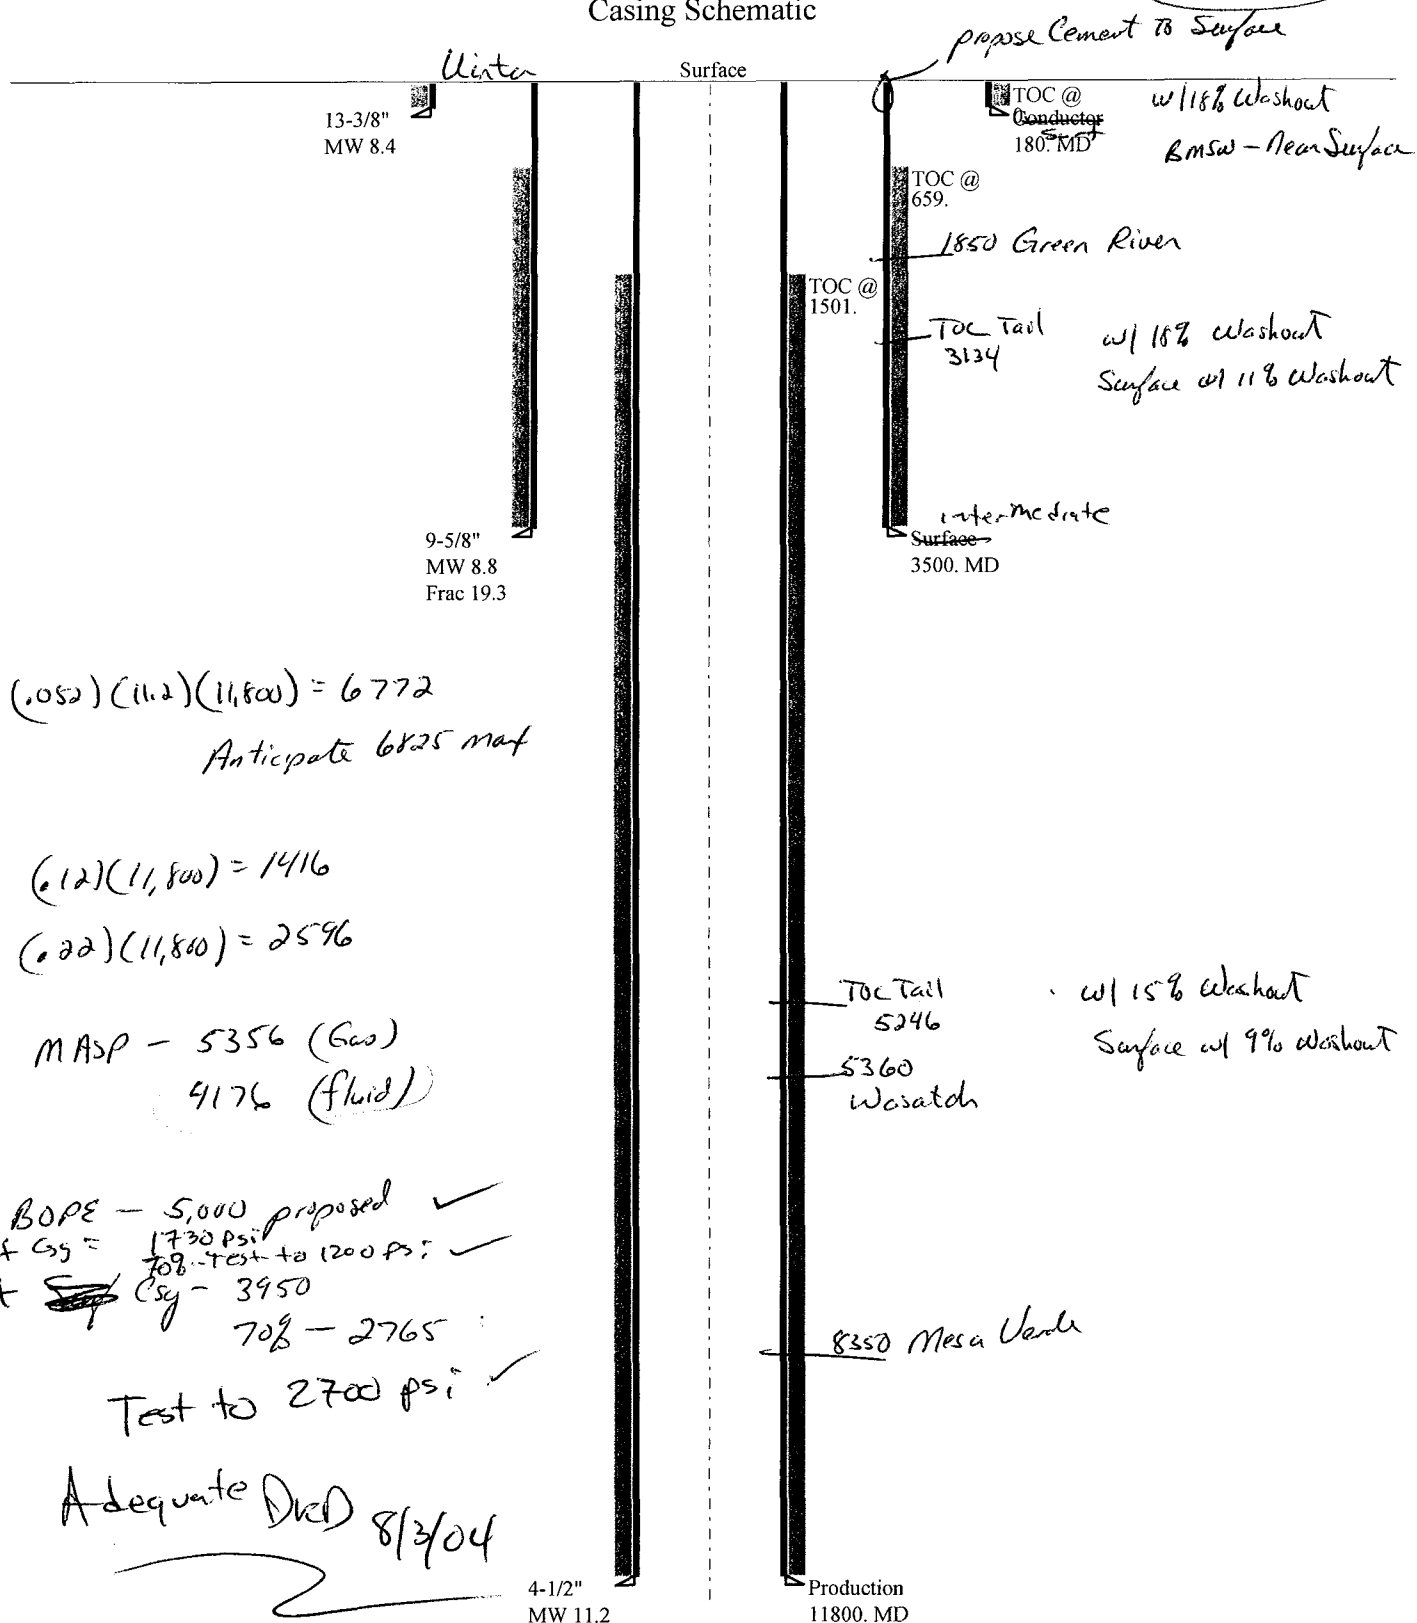 Casing Schematic
propose Cement To Surface
Uinta
Surface
13-3/8"
MW 8.4
TOC @
0.
Conductor
Surf
180. MD
w/ 18% Washout
BMSW - Near Surface
TOC @
659.
1850 Green River
TOC @
1501.
TOC Tail
3134
w/ 18% Washout
Surface w/ 11% Washout
intermediate
9-5/8"
MW 8.8
Frac 19.3
Surface
3500. MD
(.052)(11.2)(11,800) = 6772
Anticipate 6825 max
(.12)(11,800) = 1416
(.22)(11,800) = 2596
MASP - 5356 (Gas)
4176 (fluid)
TOC Tail
5246
w/ 15% Washout
Surface w/ 9% Washout
5360
Wasatch
BOPE - 5,000 proposed ✓
Csg = 1730 psi
70% - Test to 1200 psi ✓
Csg - 3950
70% - 2765
8350 Mesa Verde
Test to 2700 psi ✓
Adequate DKD 8/3/04
4-1/2"
MW 11.2
Production
11800. MD